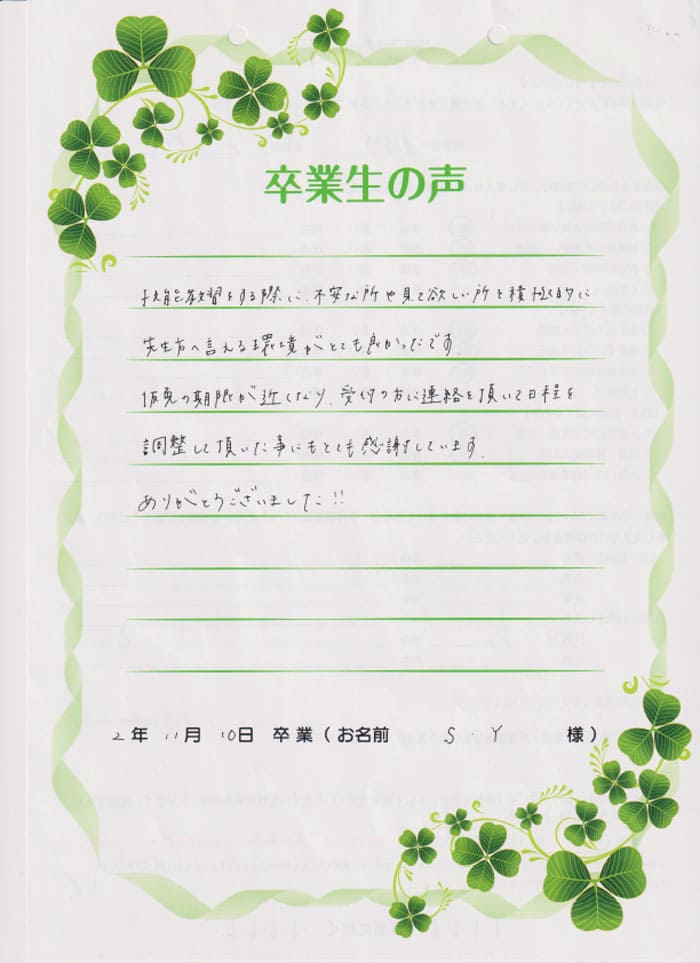 卒業生の声
技能教習をする際に、不安な所や見て欲しい所を積極的に
先生方へ言える環境がとても良かったです。
仮免の期限が近くなり、受付の方に連絡を頂いて日程を
調整して頂いた事にもとても感謝しています。
ありがとうございました!!
2年 11月 10日 卒業(お名前 S.Y 様)